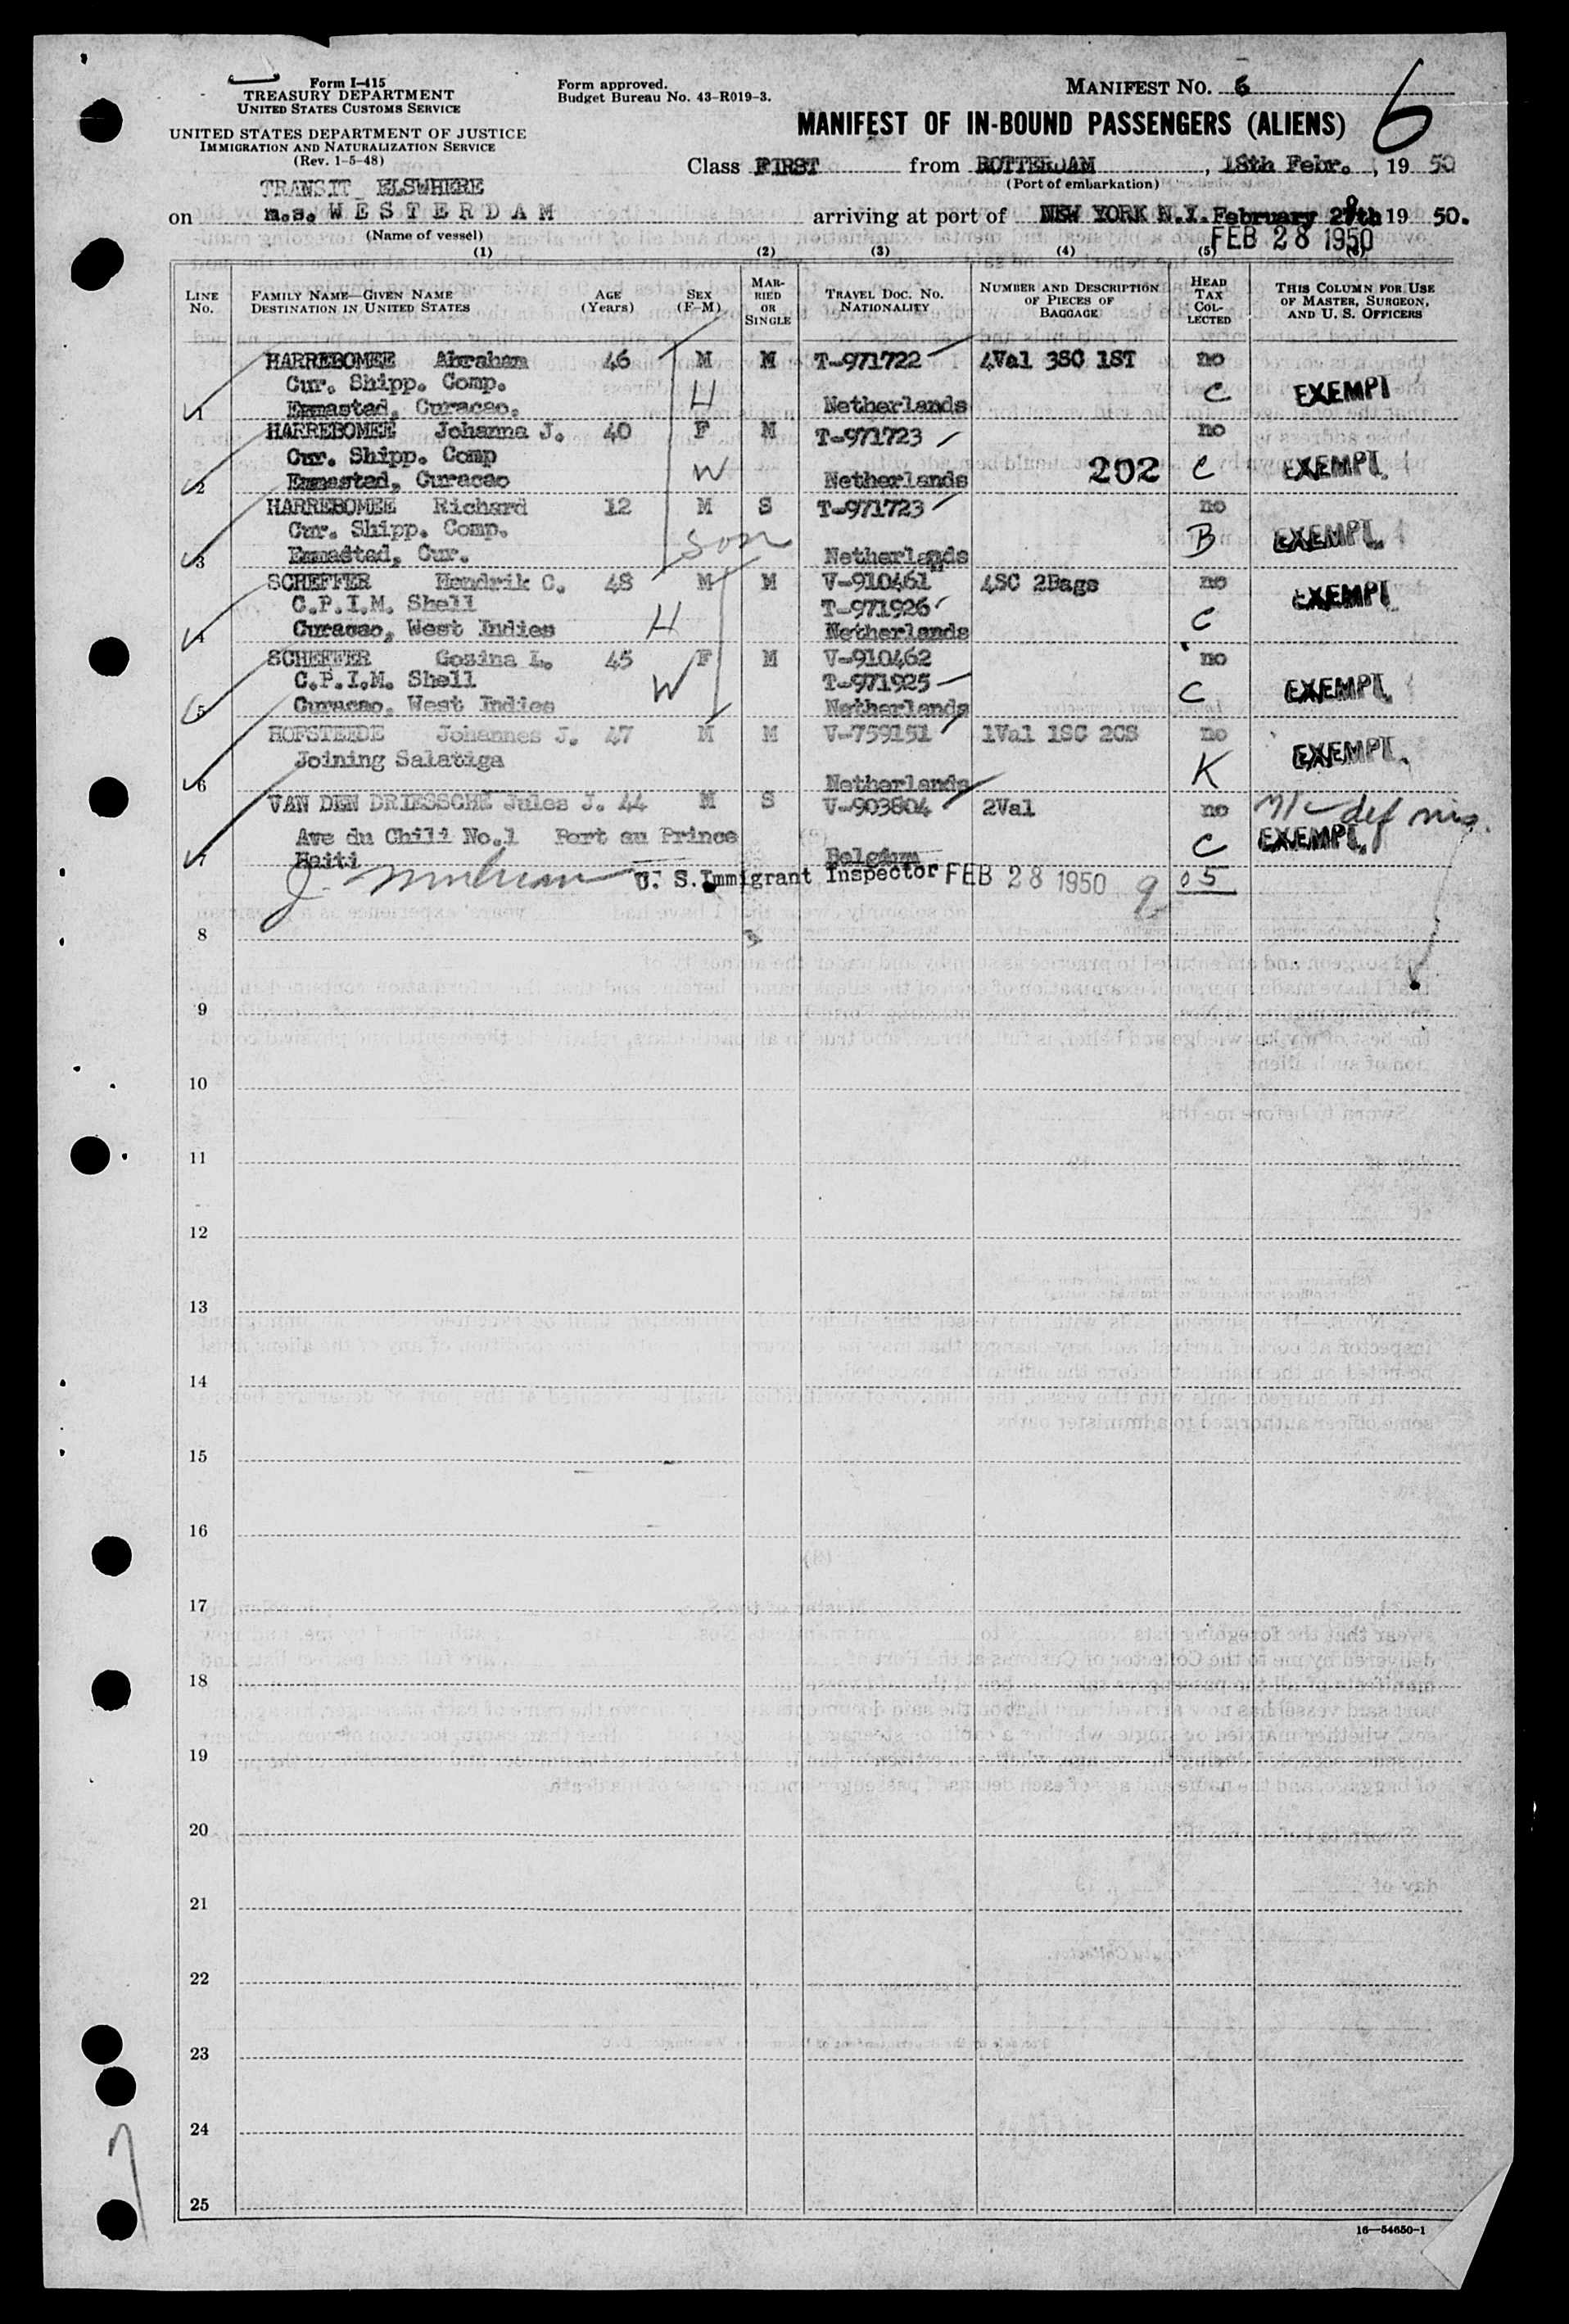 Form I-415
TREASURY DEPARTMENT
UNITED STATES CUSTOMS SERVICE
UNITED STATES DEPARTMENT OF JUSTICE
IMMIGRATION AND NATURALIZATION SERVICE
(Rev. 1-5-48)
Form approved.
Budget Bureau No. 43-R019-3.
MANIFEST NO. 6
6
MANIFEST OF IN-BOUND PASSENGERS (ALIENS)
Class FIRST from ROTTERDAM, 18th Febr., 19 50
(Port of embarkation)
TRANSIT ELSWHERE
on m.s. WESTERDAM arriving at port of NEW YORK N.Y. February 28th 19 50.
(Name of vessel)
FEB 28 1950
(1) (2) (3) (4) (5) (6)
LINE NO. FAMILY NAME—GIVEN NAME DESTINATION IN UNITED STATES AGE (Years) SEX (F-M) MARRIED OR SINGLE TRAVEL DOC. NO. NATIONALITY NUMBER AND DESCRIPTION OF PIECES OF BAGGAGE HEAD TAX COLLECTED THIS COLUMN FOR USE OF MASTER, SURGEON, AND U. S. OFFICERS
HARREBOMEE Abraham 46 M M T-971722 4Val 3SC 1ST no
Cur. Shipp. Comp. H C EXEMPT
1 Emmastad, Curacao. Netherlands
HARREBOMEE Johanna J. 40 F M T-971723 no
Cur. Shipp. Comp W 202 C EXEMPT
2 Emmastad, Curacao Netherlands
HARREBOMEE Richard 12 M S T-971723 no
Cur. Shipp. Comp. son B EXEMPT
3 Emmastad, Cur. Netherlands
SCHEFFER Hendrik C. 48 M M V-910461 4SC 2Bags no
C.P.I.M. Shell T-971926 EXEMPT
4 Curacao, West Indies H Netherlands C
SCHEFFER Gosina L. 45 F M V-910462 no
C.P.I.M. Shell W T-971925 C EXEMPT
5 Curacao, West Indies Netherlands
HOFSTEEDE Johannes J. 47 M M V-759151 1Val 1SC 2CS no
Joining Salatiga K EXEMPT
6 Netherlands
VAN DEN DRIESSCHE Jules J. 44 M S V-903804 2Val no
Ave du Chili No.1 Port au Prince C EXEMPT
7 Haiti Belgium
U. S. Immigrant Inspector FEB 28 1950
8
9
10
11
12
13
14
15
16
17
18
19
20
21
22
23
24
25
16—54650-1